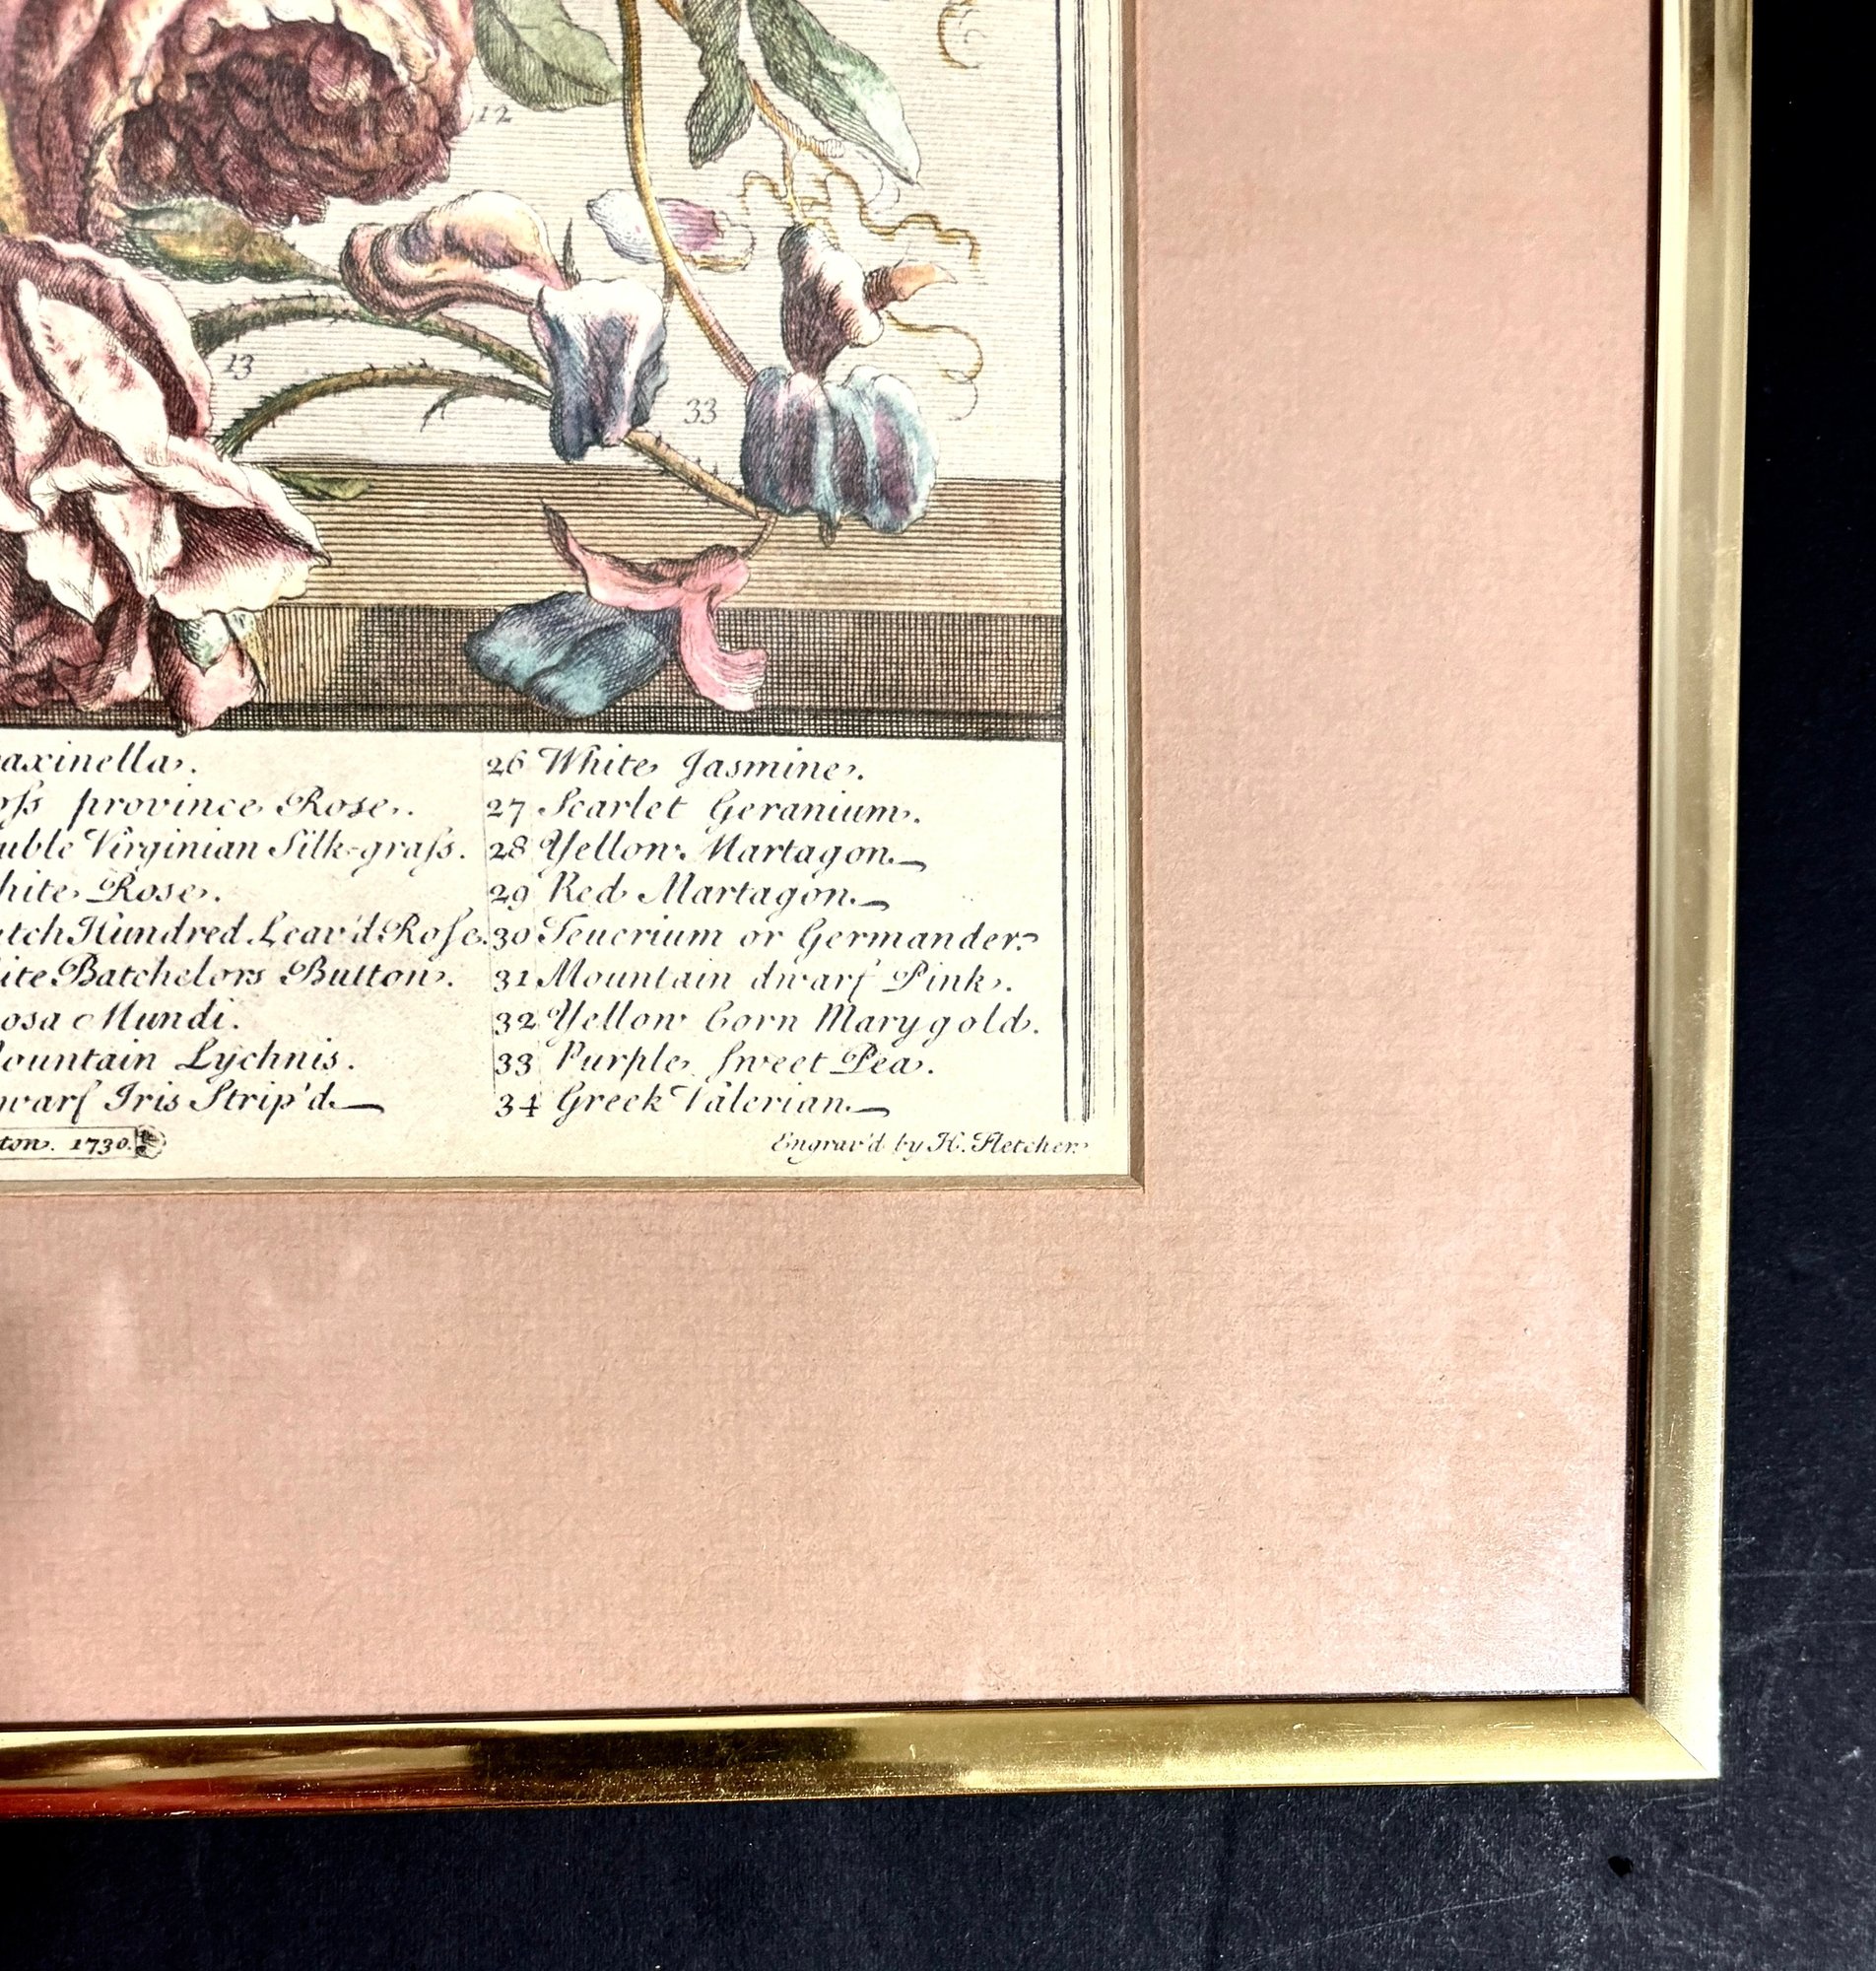 12
13
33
axinella.
oſs province Rose.
uble Virginian Silk-graſs.
hite Rose.
utch Hundred Leav'd Roſe.
ite Batchelors Button.
osa Mundi.
ountain Lychnis.
warf Iris Strip'd
26 White Jasmine.
27 Scarlet Geranium.
28 Yellow Martagon.
29 Red Martagon.
30 Teucrium or Germander.
31 Mountain dwarf Pink.
32 Yellow Corn Marygold.
33 Purple Sweet Pea.
34 Greek Valerian.
ton. 1730.
Engrav'd by H. Fletcher.